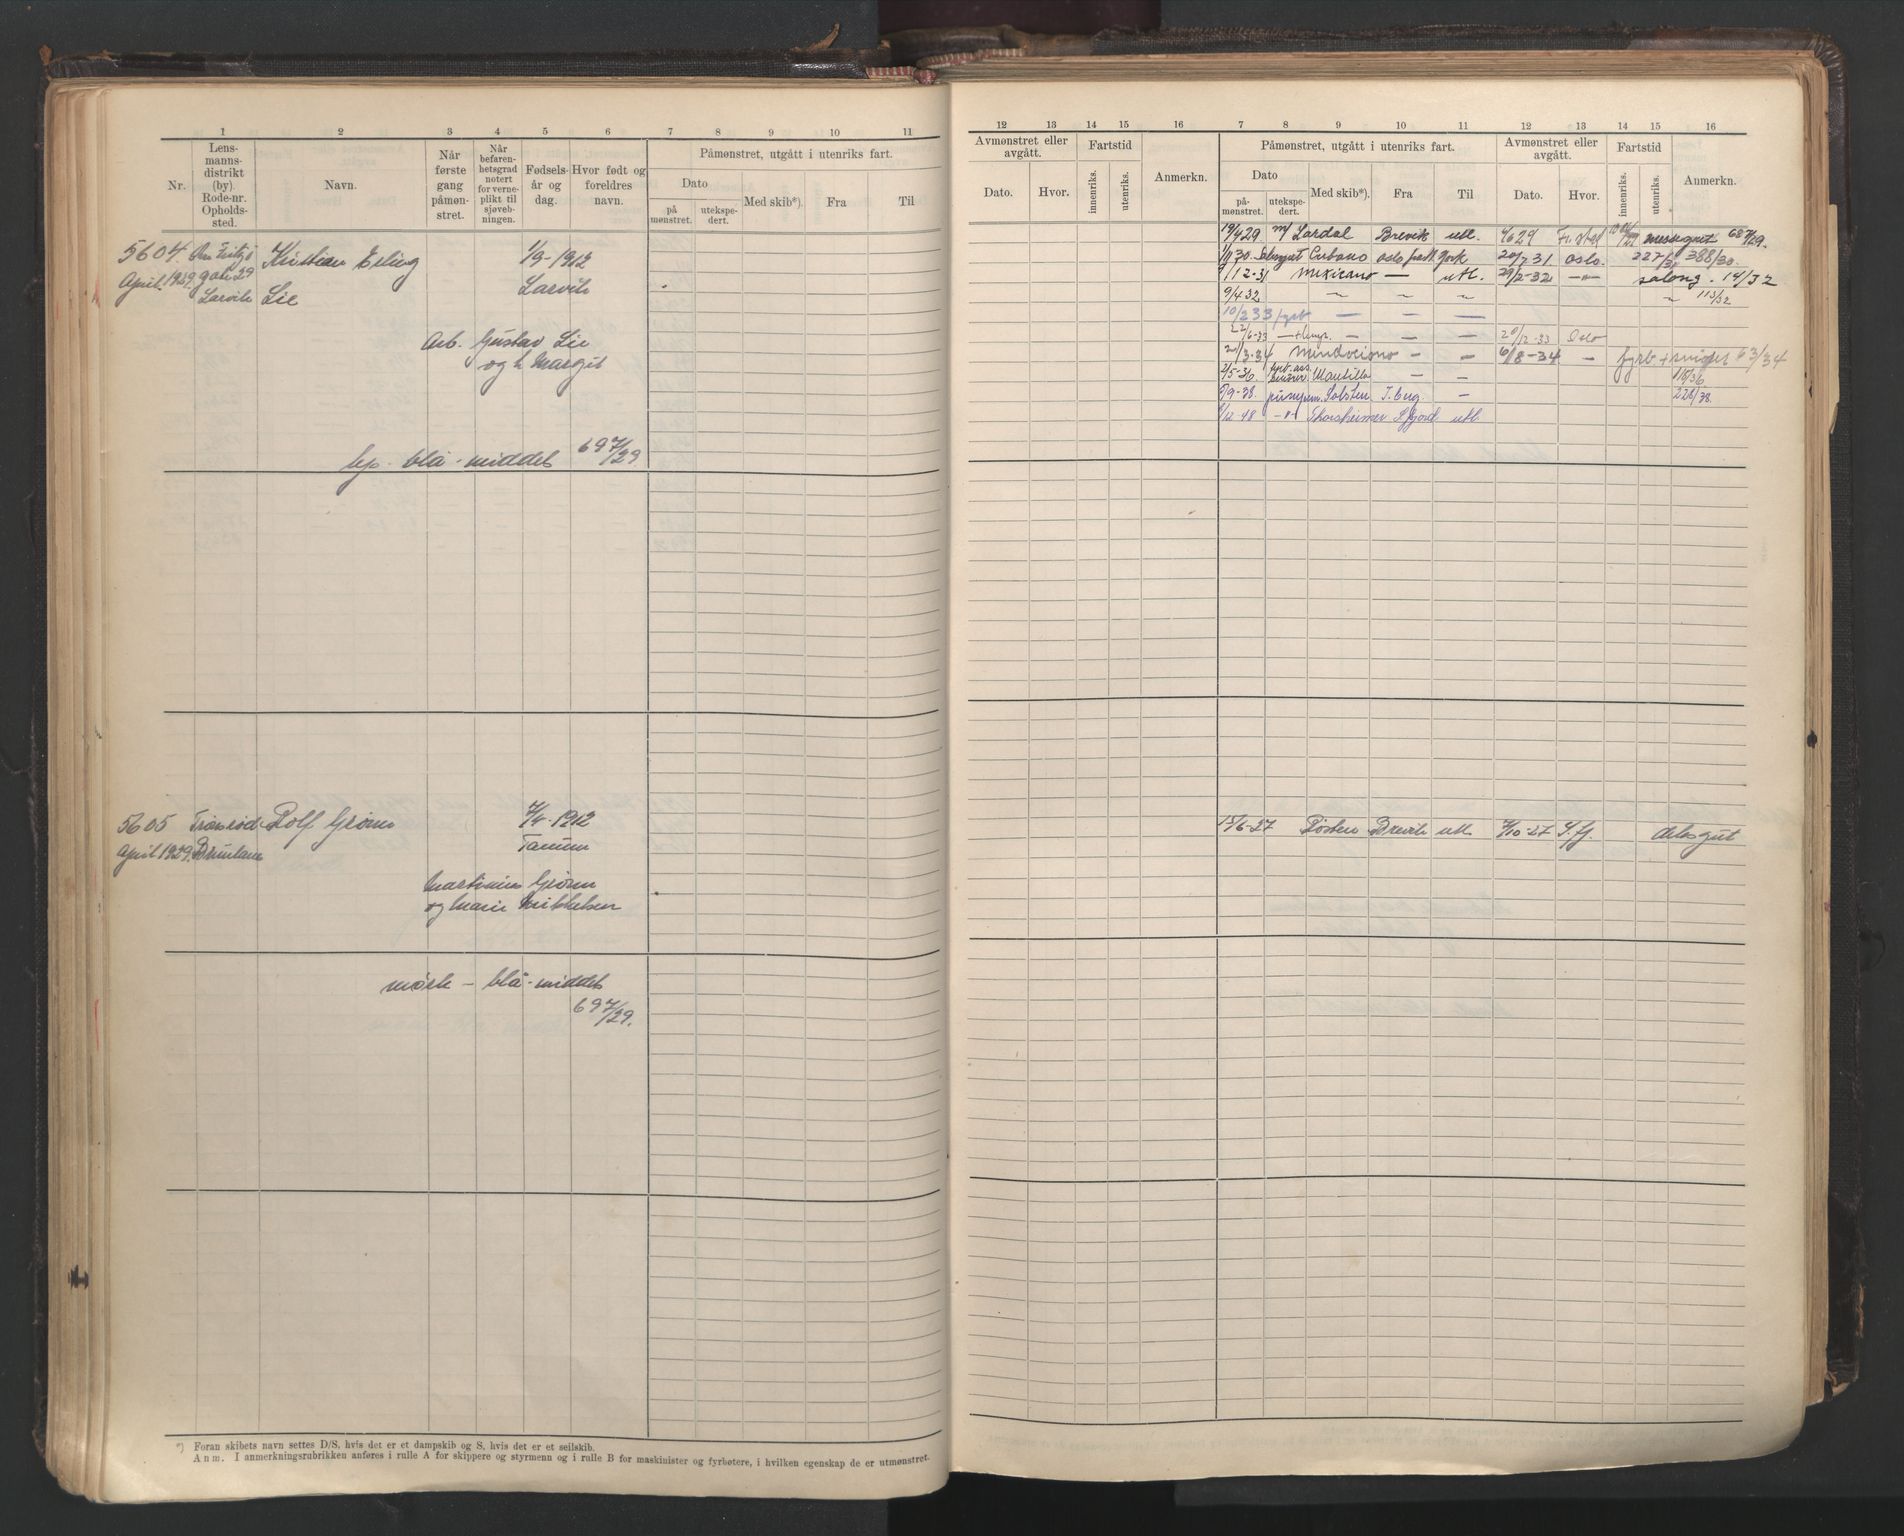 1 2 3 4 5 6 7 8 9 10 11
Nr.
Lens-
manns-
distrikt
(by).
Rode-nr.
Opholds-
sted.
Navn.
Når
første
gang
påmøn-
stret.
Når
befaren-
hetsgrad
notert
for verne-
plikt til
sjøveb-
ningen.
Fødsels-
år og
dag.
Hvor født og
foreldres
navn.
Påmønstret, utgått i utenriks fart.
Dato
på
mønstret.
utekspe-
dert.
Med skib*).
Fra
Til
5604 Kristian Erling 1/9-1912
April 1929 Larvik Lie Larvik
Arb. Gustav Lie
og h. Margit
lys - blå - middel 697/29
5605 Rolf Grønn 7/4-1912
April 1929. Brunlanes Tanum
Martinius Grønn
og Marie Mikkelsen
mørk - blå - middel
697/29.
*) Foran skibets navn settes D/S, hvis det er et dampskib og S, hvis det er et seilskib.
Anm. I anmerkningsrubrikken anføres i rulle A for skippere og styrmenn og i rulle B for maskinister og fyrbøtere, i hvilken egenskap de er utmønstret.
12 13 14 15 16 7 8 9 10 11 12 13 14 15 16
Avmønstret eller
avgått.
Dato.
Hvor.
Fartstid
innenriks.
utenriks.
Anmerkn.
Påmønstret, utgått i utenriks fart.
Dato
på-
mønstret.
utekspe-
dert.
Med skib*).
Fra
Til
Avmønstret eller
avgått.
Dato.
Hvor.
Fartstid
innenriks.
utenriks.
Anmerkn.
19/4 29 m/ Lardal Brevik utl. 687/29.
Cubano Oslo 20/7 31 Oslo. 388/30.
1/12-31 Mexicano — utl. 29/2-32 —"— salong. 14/32
9/4 32 ~ ~ ~ " 113/32
10/2 33 fyrb — — —
22/6-33 — — — 20/12-33 Oslo
21/3-34 — — 6/8-34 — 63/34
2/5-36. — — 115/36
9-38. pumpem. — 228/38.
12-48 —"— Thorsheimer S.fjord utl.
15/6-27 Brevik utl 7/10-27 S.fj. deksgut